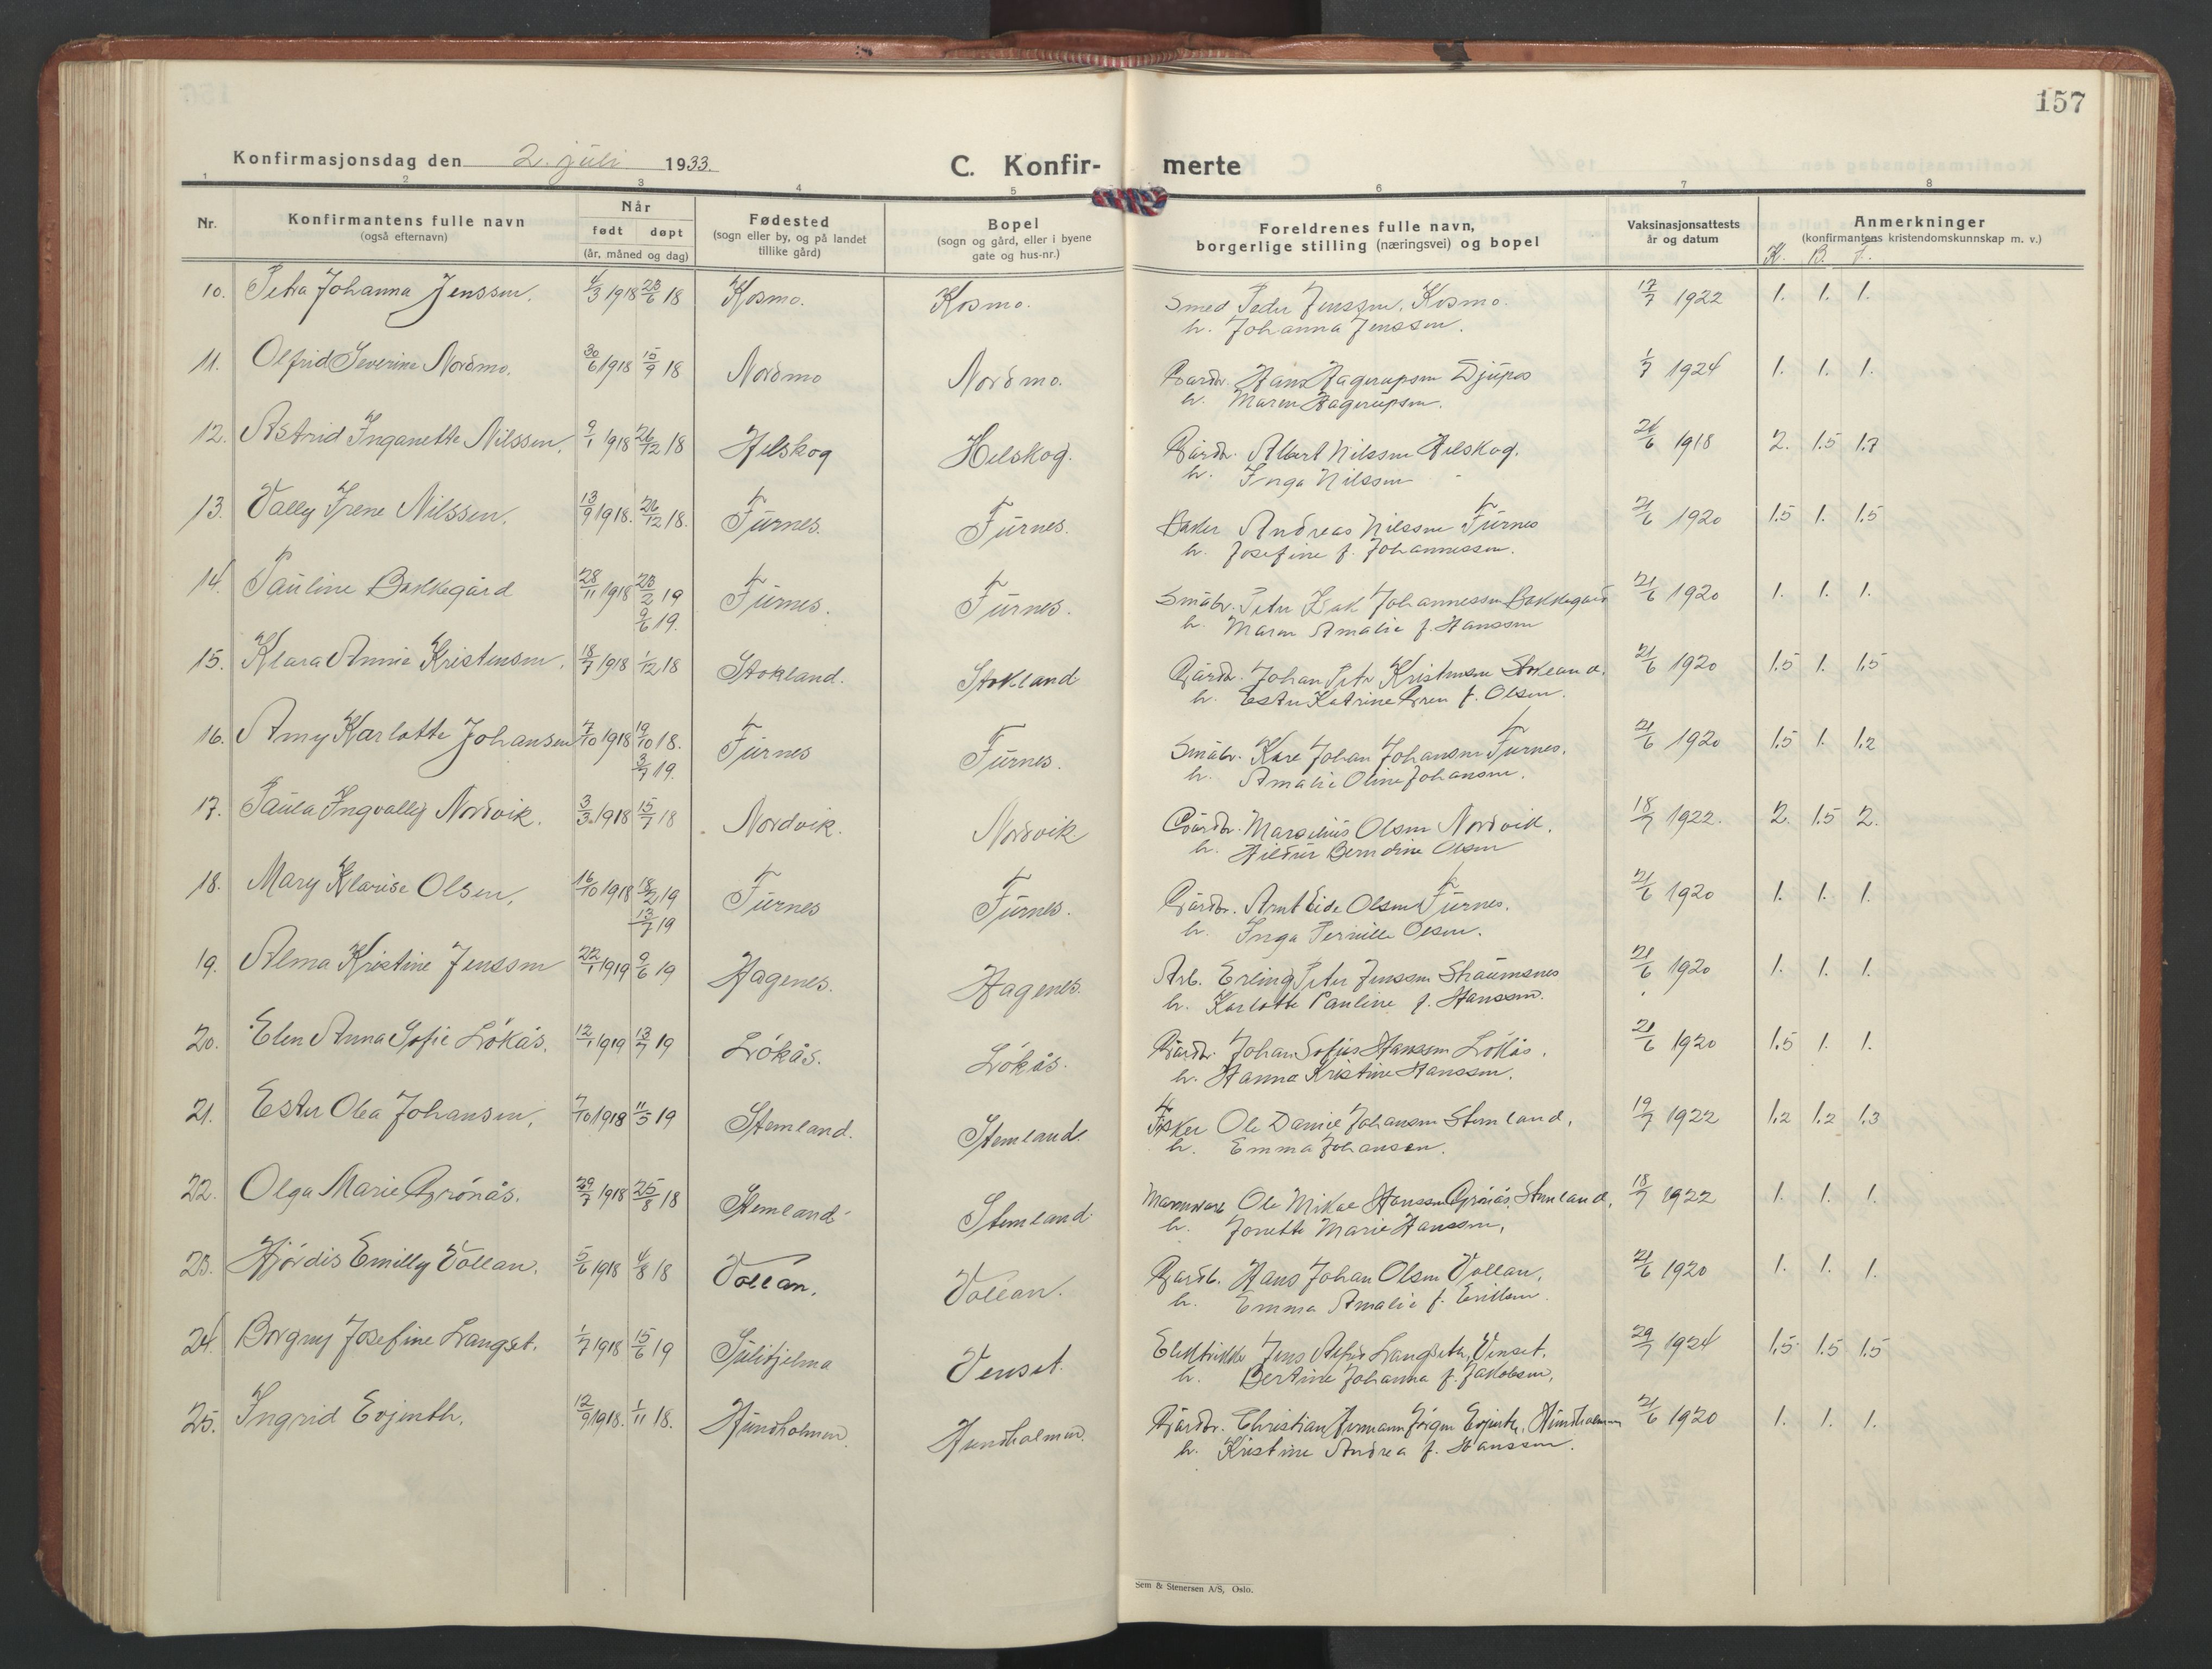 157
Konfirmasjonsdag den 2. juli 1933.
C. Konfir- merte
1 2 3 4 5 6 7 8
Nr.
Konfirmantens fulle navn
(også efternavn)
Når
født døpt
(år, måned og dag)
Fødested
(sogn eller by, og på landet
tillike gård)
Bopel
(sogn og gård, eller i byene
gate og hus-nr.)
Foreldrenes fulle navn,
borgerlige stilling (næringsvei) og bopel
Vaksinasjonsattests
år og datum
Anmerkninger
(konfirmantens kristendomskunnskap m. v.)
K. B. F.
10. Petra Johanna Jenssen. 4/3 1918 23/6 18 Kosmo. Kosmo. Smed Peder Jenssen, Kosmo. 17/7 1922 1. 1. 1.
h. Johanna Jenssen.
11. Olfrid Severine Nordmo. 30/6 1918 15/9 18 Nordmo Nordmo. Gardbr. Hans Hagerupsen Djupos 1/7 1924 1. 1. 1.
h. Maren Hagerupsen.
12. Astrid Inganette Nilssen. 9/1 1918 26/12 18 Helskog Helskog. Gårdbr. Albert Nilssen Helskog. 21/6 1918 2. 1.5 1.7
h. Inga Nilssen
13. Vally Irene Nilssen. 13/9 1918. 26/12 18. Furnes. Furnes. Baker Andreas Nilssen Furnes 21/6 1920 1.5 1. 1.5
h. Josefine f. Johannessen.
14. Pauline Bakkegård 28/11 1918 23/2 19 Furnes. Furnes. Småbr. Peter Isak Johannessen Bakkegård 21/6 1920 1. 1. 1.
9/6 19. h. Maren Amalie f. Hanssen
15. Klara Annie Kristensen. 18/7 1918 1/12 18 Stokland. Stokland Gårdbr. Johan Peter Kristensen Stokland. 21/6 1920 1.5 1. 1.5
h. Ester Katrine Gren f. Olsen.
16. Amy Karlotte Johansen 7/10 1918 19/10 18. Furnes Furnes. Småbr. Kare Johan Johansen Furnes. 21/6 1920 1.5 1. 1.2
3/7 19. h. Amalie Oline Johansen.
17. Paula Ingvally Nordvik. 3/3 1918 15/7 18 Nordvik. Nordvik Gårdbr. Marselius Olsen Nordvik. 18/7 1922. 2. 1.5 2.
h. Hildur Berndine Olsen
18. Mary Klarise Olsen. 16/10 1918 18/2 19 Furnes Furnes. Gårdbr. Arnt Eide Olsen Furnes. 21/6 1920 1. 1. 1.
13/7 19 h. Inga Pernille Olsen.
19. Alma Kristine Jenssen 22/1 1919 9/6 19 Hagenes. Hagenes. Arb. Erling Peter Jenssen Straumsnes 21/6 1920 1. 1. 1.
h. Karlotte Pauline f. Hanssen.
20. Elen Anna Sofie Løkås. 12/1 1919 13/7 19 Løkås. Løkås. Gårdbr. Johan Sofus Hanssen Løkås. 21/6 1920 1.5 1. 1.
h. Hanna Kristine Hanssen.
21. Ester Olea Johansen. 7/10 1918 11/5 19 Stemland. Stemland. Fisker Ole Daniel Johansen Stemland. 19/7 1922 1.2 1.2 1.3
h. Emma Johansen.
22. Olga Marie Grønås. 29/7 1918 25/8 18 Stemland Stemland Ole Mikal Hanssen Grønås, Stemland. 18/7 1922 1. 1. 1.
h. Jonette Marie Hanssen.
23. Hjørdis Emilly Vollan. 5/6 1918 4/8 18 Vollan. Vollan. Gardb. Hans Johan Olsen Vollan. 21/6 1920 1. 1. 1.
h. Emma Amalie f. Eriksen.
24. Borgny Josefine Langset. 1/7 1918 15/6 19 Sulitjelma Venset. Elektriker Jens Alfred Langseth, Venset. 29/7 1924 1.5 1.5 1.5
h. Bertine Johanna f. Jakobsen.
25. Ingrid Evjenth. 12/9 1918. 1/11 18. Hundholmen. Hundholmen. Gårdbr. Christian Hermann Jörgen Evjenth, Hundholmen 21/6 1920 1. 1. 1.
h. Kristine Andrea f. Hanssen.
Sem & Stenersen A/S, Oslo.